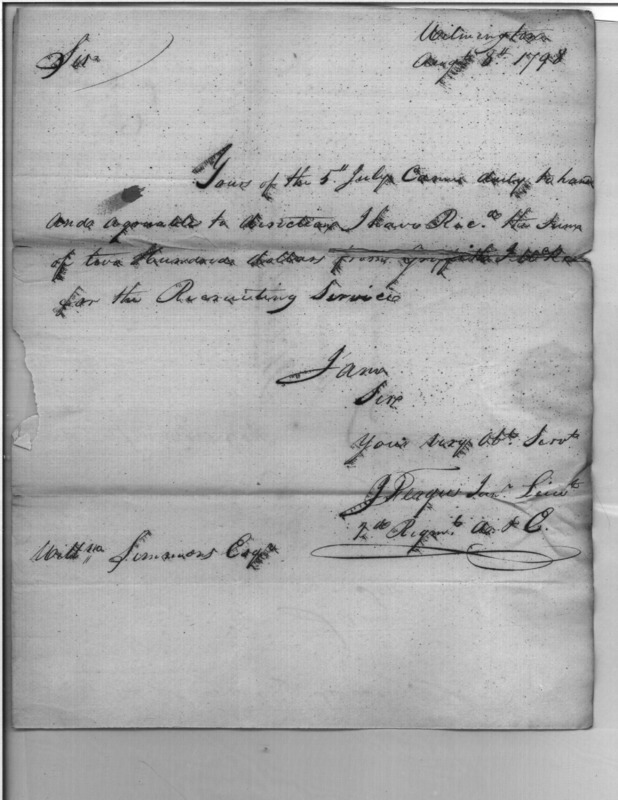 Wilmington
Augt 8th 1798
Sir
Yours of the 5th July Came duly to hand
and agreeable to directions I have Recd the Sum
of two Hundred dollars from Griffith J
for the Recruiting Service
I am
Sir
Your very Obt Servt
Junr Lieut
2d Regmt A & E.
Willm Simmons Esqr